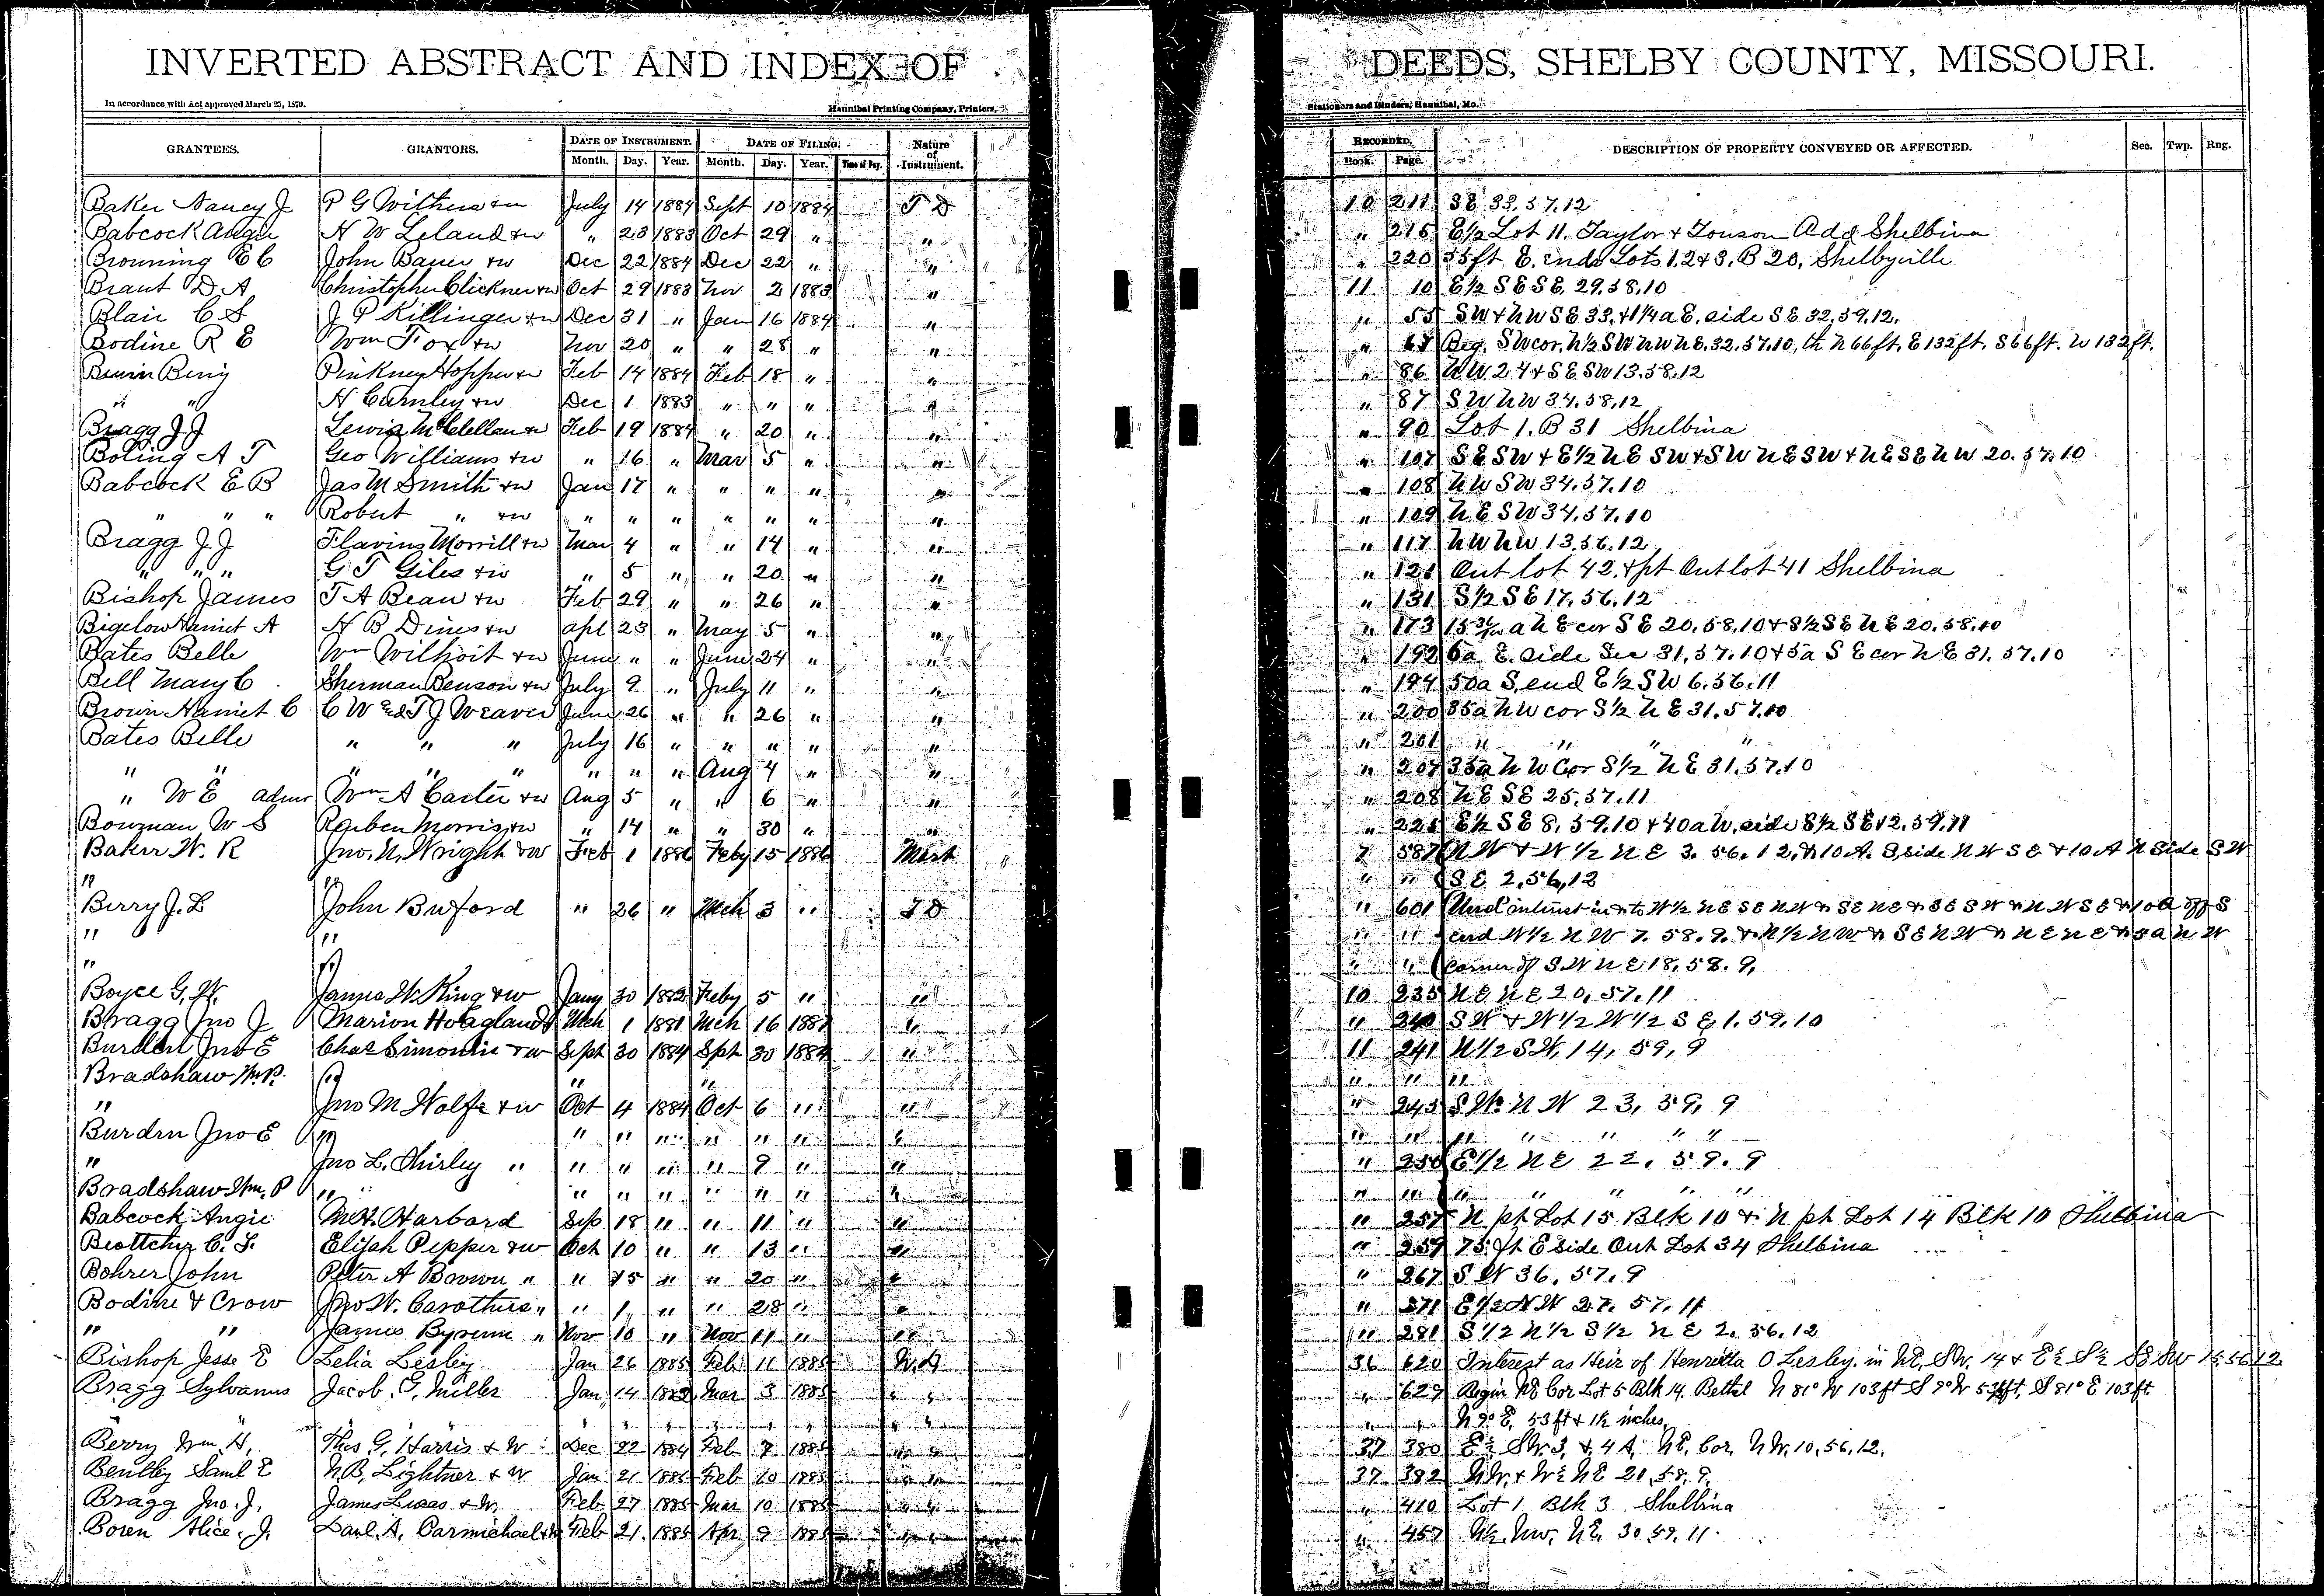 INVERTED ABSTRACT AND INDEX OF DEEDS, SHELBY COUNTY, MISSOURI.
In accordance with Act approved March 25, 1870. Hannibal Printing Company, Printers, Stationers and Binders, Hannibal, Mo.
GRANTEES. GRANTORS. DATE OF INSTRUMENT. Month. Day. Year. DATE OF FILING. Month. Day. Year. Time of Day. Nature of Instrument. RECORDED. Book. Page. DESCRIPTION OF PROPERTY CONVEYED OR AFFECTED. Sec. Twp. Rng.
Baker Nancy J P G Withers +w July 14 1884 Sept 10 1884 T D 10 211 SE 33.57.12
Babcock Angie H W Leland +w " 23 1883 Oct 29 " " " 215 E1/2 Lot 11. Taylor + Tonson Add Shelbina
Browning E C John Bauer +w Dec 22 1884 Dec 22 " " " 220 55ft E. ends Lots 1.2+3. B 20, Shelbyville
Brant D A Christopher Clickner +w Oct 29 1883 Nov 2 1883 " 11 10 E1/2 SE SE. 29.58.10
Blair C S J P Killinger +w Dec 31 " Jan 16 1884 " " 55 SW + NW SE 33. +1 1/4 a E. side SE 32.59.12.
Bodine R E Wm Fox +w Nov 20 " " 28 " " " 67 Beg. SW cor. N1/2 SW NW NE. 32.57.10, th N 66ft. E 132ft. S 66ft. W 132ft.
Pinkney Hopper +w Feb 14 1884 Feb 18 " " " 86 NW 24 + SE SW 13.58.12
" " H Carnley +w Dec 1 1883 " " " " " 87 SW NW 34.58.12
Bragg J J Lewis McClellan +w Feb 19 1884 " 20 " " " 90 Lot 1. B 31 Shelbina
Boling A T Geo Williams +w " 16 " Mar 5 " " " 107 SE SW + E1/2 NE SW + SW NE SW + NE SE NW 20.57.10
Babcock E B Jas M Smith +w Jan 17 " " " " " " 108 NW SW 34.57.10
" " " Robert " +w " " " " " " " " 109 NE SW 34.57.10
Bragg J J Flavius Morrill +w Mar 4 " " 14 " " " 117 NW NW 13.56.12
" " " G T Giles +w " 5 " " 20 " " " 121 Out lot 42. +pt Out lot 41 Shelbina
Bishop James T A Bean +w Feb 29 " " 26 " " " 131 S1/2 SE 17.56.12
Bigelow Harriet A H B Dines +w Apl 23 " May 5 " " " 173 a NE cor SE 20.58.10 + S1/2 SE NE 20.58.10
Bates Belle Wm Wilhoit +w June " " June 24 " " " 192 6a E. side Sec 31.57.10 + 5a SE cor NE 31.57.10
Bell Mary C Sherman Benson +w July 9 " July 11 " " " 194 50a S. end E1/2 SW 6.56.11
Brown Harriet C C W and T J Weaver June 26 " " 26 " " " 200 35a NW cor S1/2 NE 31.57.10
Bates Belle " " " July 16 " " " " " " 201 " " " "
" " " " " " " " Aug 4 " " " 207 35a NW Cor S1/2 NE 31.57.10
" W E admr Wm A Carter +w Aug 5 " " 6 " " " 208 NE SE 25.57.11
Bowman W S Reuben Morris +w " 14 " " 30 " " " 225 E1/2 SE 8, 59.10 + 40a W. side S1/2 SE 12.59.11
Baker W. R Jno. N. Wright +w Feb 1 1886 Feby 15 1886 Mort 7 587 NW + W1/2 NE 3. 56.12, +10 A. S side NW SE +10 A N side SW
" " " " SE 2,56,12
Berry J. L John Buford " 26 " Mch 3 " T D " 601 Und interest in + to W1/2 NE SE NW + SE NE + SE SW + NW SE +10a off S
" " " " end W1/2 NW 7. 58. 9. + N1/2 NW + SE NW + NE NE + 5a NW
" " " " corner of SW NE 18, 58. 9,
Boyce G. W. James W. King +w Jany 30 1882 Feby 5 " " 10 235 NE NE 20, 57.11
Bragg Jno J Marion Hoagland Mch 1 1881 Mch 16 1881 " " 240 SW + W1/2 W1/2 SE 1. 59.10
Burden Jno E Chas Simonin +w Sept 30 1884 Spt 30 1884 " 11 241 N1/2 SW, 14, 59, 9
Bradshaw Wm P. " " " " " "
" Jno M Wolfe +w Oct 4 1884 Oct 6 " " " 245 SW NW 23, 59, 9
Burden Jno E " " " " " " " " " " " " " " "
" Jno L. Shirley " " " " " 9 " " " 250 E1/2 NE 22. 59. 9
Bradshaw Wm. P " " " " " " " " " " " " " "
Babcock Angie M. H. Harbard Sep 18 " " 11 " " " 257 N pt Lot 15 Blk 10 + N pt Lot 14 Blk 10 Shelbina
C. F. Elijah Pepper +w Oct 10 " " 13 " " " 259 75 ft E side Out Lot 34 Shelbina
Bohrer John Peter A Bowun " " 15 " " 20 " " " 267 SW 36. 57. 9
Bodine & Crow Jno W. Carothers " " 1 " " 28 " " " 271 E1/2 NW 27. 57. 11
" " James Byrum " Nov 10 " Nov 11 " " " 281 S1/2 N1/2 S1/2 NE 2. 56.12
Bishop Jesse E Lelia Lesley Jan 26 1885 Feb 11 1885 W.D 36 620 Interest as Heir of Henrietta O Lesley. in NE, SW, 14 + E½ S½ SE SW 15 56 12
Bragg Sylvanus Jacob. G. Miller Jan 14 Mar 3 1885 " " " 629 Begin NE Cor Lot 5 Blk 14. Bethel N 81° W 103 ft S 9° W 53½ft. S 81° E 103 ft.
" " " " " " " " " " N 9° E, 53 ft + 1½ inches,
Berry Wm. H, Thos G. Harris + W Dec 22 1884 Feb 7 1885 " " 37 380 E½ SW. 3, + 4 A, NE, Cor, NW, 10, 56, 12,
Bentley Saml E N. B, Lightner + W Jan 21 1885 Feb 10 1885 " " 37 382 NW, + W½ NE 21, 58, 9,
Bragg Jno. J. James Lucas + W. Feb 27 1885 Mar 10 1885 " " " 410 Lot 1 Blk 3 Shelbina
Boren Alice. J. Danl. A. Carmichael +w Feb 21 1885 Apr 9 1885 " " " 457 N½, NW, NE, 30 59. 11.